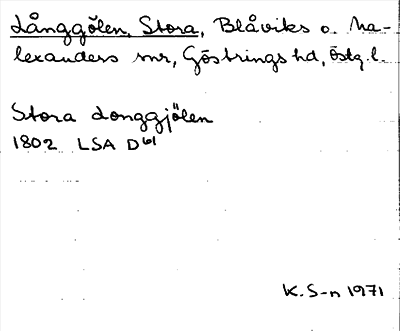 Långgölen, Stora, Blåviks o. Ma-
lexanders snr, Göstrings hd, Östg.l.
Stora Longgjölen
1802 LSA D61
K.S-n 1971